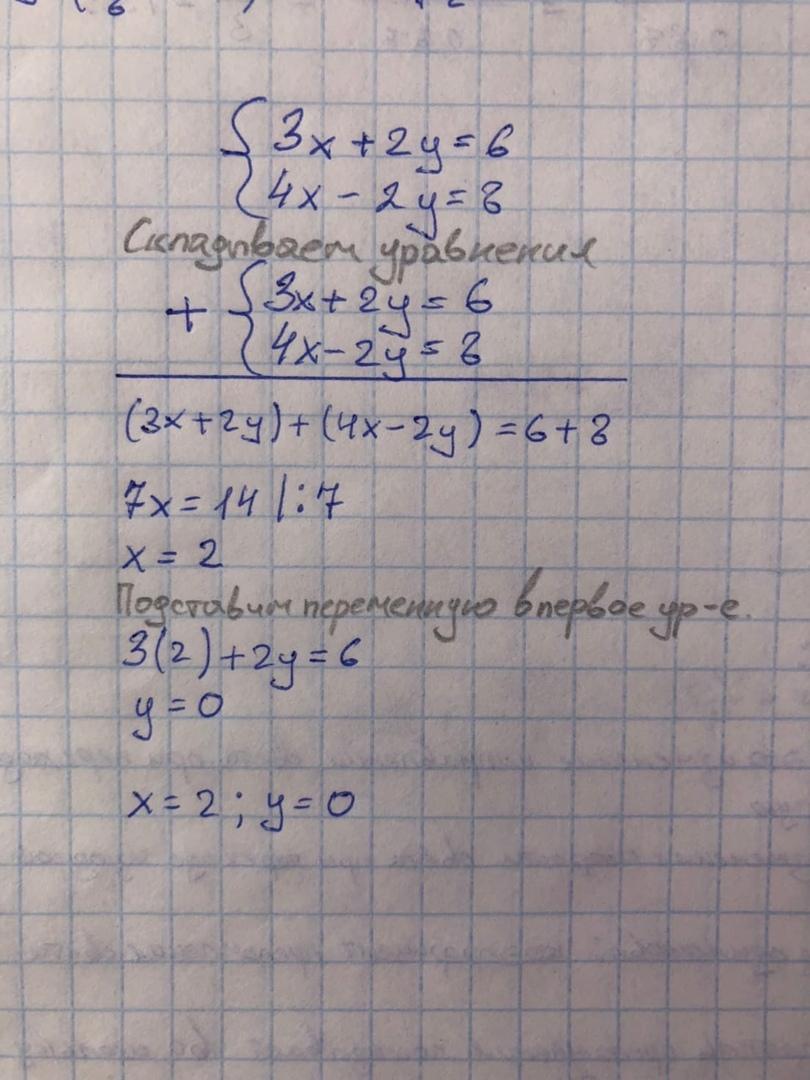 3x + 2y = 6
4x - 2y = 8
Складываем уравнения
+ 3x + 2y = 6
4x - 2y = 8
(3x + 2y) + (4x - 2y) = 6 + 8
7x = 14 | : 7
x = 2
Подставим переменную в первое ур-е.
3(2) + 2y = 6
y = 0
x = 2 ; y = 0